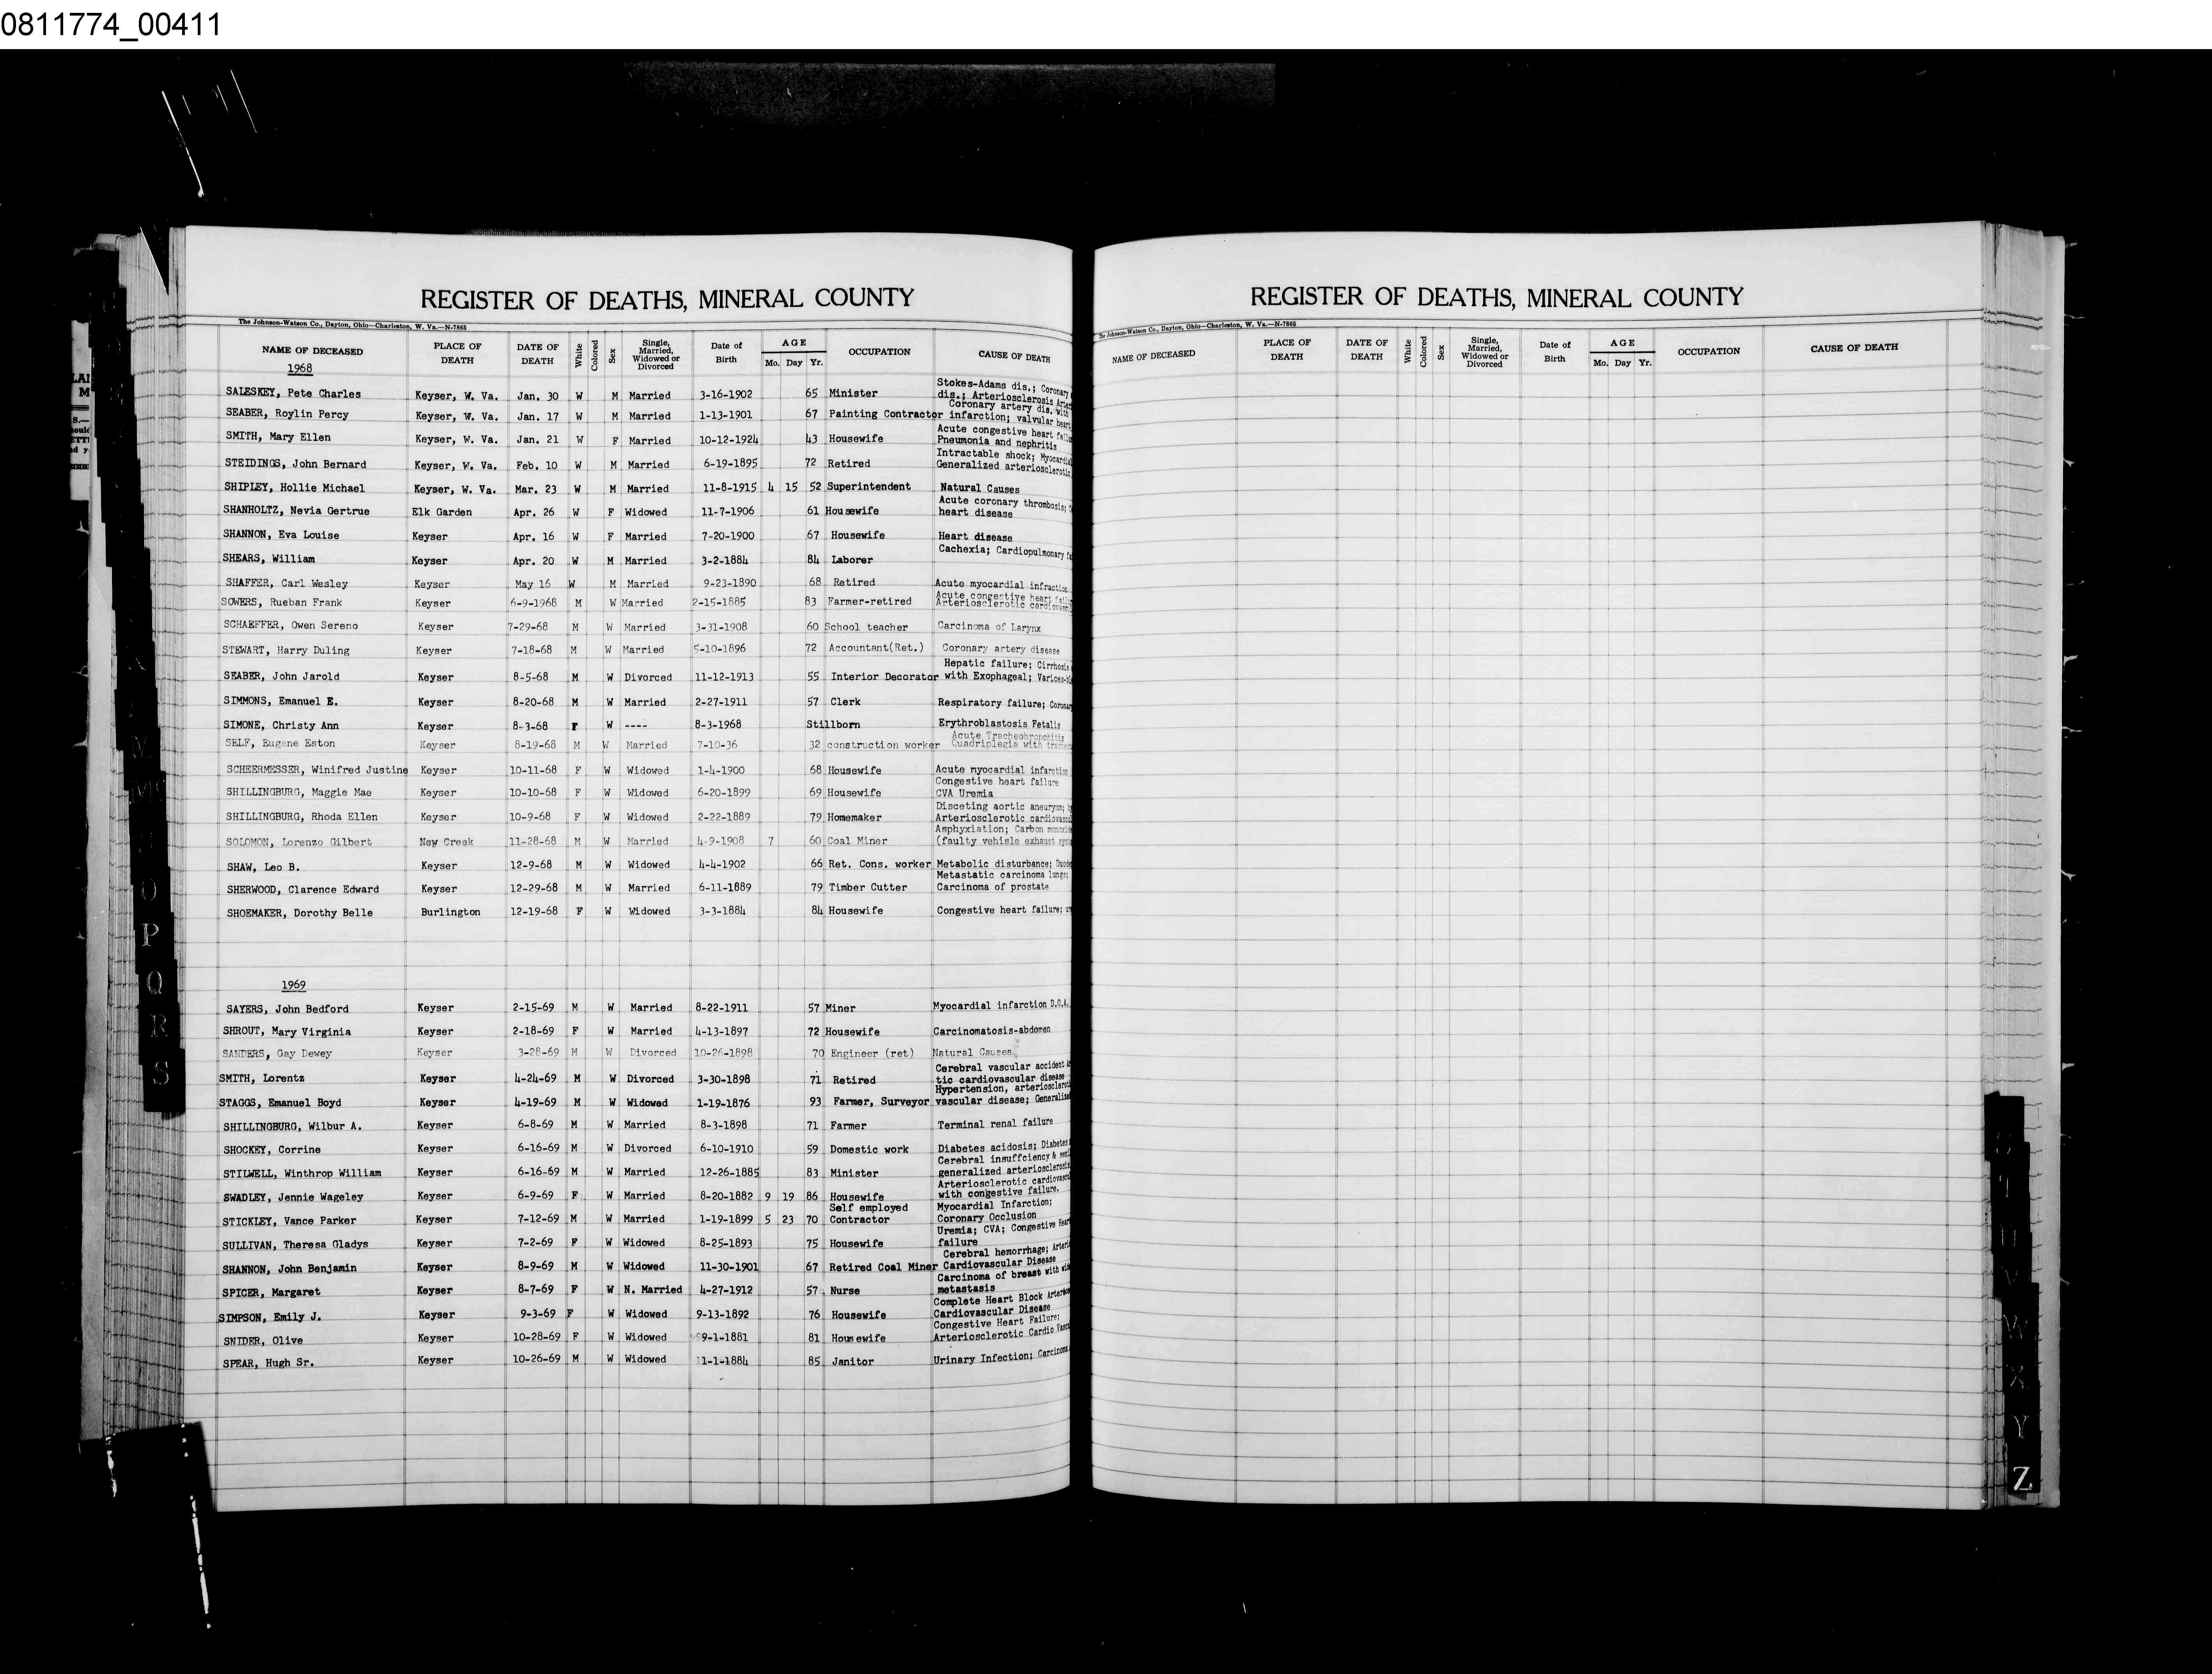 0811774_00411
REGISTER OF DEATHS, MINERAL COUNTY
The Johnson-Watson Co., Dayton, Ohio—Charleston, W. Va.—N-7865
NAME OF DECEASED PLACE OF DEATH DATE OF DEATH White Colored Sex Single, Married, Widowed or Divorced Date of Birth AGE Mo. Day Yr. OCCUPATION CAUSE OF DEATH
1968
SALESKEY, Pete Charles Keyser, W. Va. Jan. 30 W M Married 3-16-1902 65 Minister Stokes-Adams dis.; Coronary dis.; Arteriosclerosis
SEABER, Roylin Percy Keyser, W. Va. Jan. 17 W M Married 1-13-1901 67 Painting Contractor Coronary artery dis. with infarction; valvular heart
SMITH, Mary Ellen Keyser, W. Va. Jan. 21 W F Married 10-12-1924 43 Housewife Acute congestive heart Pneumonia and nephritis
STEIDINGS, John Bernard Keyser, W. Va. Feb. 10 W M Married 6-19-1895 72 Retired Intractable shock; Generalized arteriosclerotic
SHIPLEY, Hollie Michael Keyser, W. Va. Mar. 23 W M Married 11-8-1915 4 15 52 Superintendent Natural Causes
SHANHOLTZ, Nevia Gertrue Elk Garden Apr. 26 W F Widowed 11-7-1906 61 Housewife Acute coronary thrombosis; heart disease
SHANNON, Eva Louise Keyser Apr. 16 W F Married 7-20-1900 67 Housewife Heart disease
SHEARS, William Keyser Apr. 20 W M Married 3-2-1884 84 Laborer Cachexia; Cardiopulmonary
SHAFFER, Carl Wesley Keyser May 16 W M Married 9-23-1890 68 Retired Acute myocardial infraction
SOWERS, Rueban Frank Keyser 6-9-1968 M W Married 2-15-1885 83 Farmer-retired Acute congestive heart Arteriosclerotic
SCHAEFFER, Owen Sereno Keyser 7-29-68 M W Married 3-31-1908 60 School teacher Carcinoma of Larynx
STEWART, Harry Duling Keyser 7-18-68 M W Married 5-10-1896 72 Accountant(Ret.) Coronary artery disease
SEABER, John Jarold Keyser 8-5-68 M W Divorced 11-12-1913 55 Interior Decorator Hepatic failure; Cirrhosis with Exophageal;
SIMMONS, Emanuel E. Keyser 8-20-68 M W Married 2-27-1911 57 Clerk Respiratory failure;
SIMONE, Christy Ann Keyser 8-3-68 F W ---- 8-3-1968 Stillborn Erythroblastosis Fetalis
SELF, Eugene Eston Keyser 8-19-68 M W Married 7-10-36 32 construction worker Acute Tracheobronchitis Quadriplegia with
SCHEERMESSER, Winifred Justine Keyser 10-11-68 F W Widowed 1-4-1900 68 Housewife Acute myocardial infarction
SHILLINGBURG, Maggie Mae Keyser 10-10-68 F W Widowed 6-20-1899 69 Housewife Congestive heart failure CVA Uremia
SHILLINGBURG, Rhoda Ellen Keyser 10-9-68 F W Widowed 2-22-1889 79 Homemaker Disceting aortic aneurysm; Arteriosclerotic
SOLOMON, Lorenzo Gilbert New Creek 11-28-68 M W Married 4-9-1908 7 60 Coal Miner Asphyxiation; Carbon (faulty vehisle exhaust
SHAW, Leo B. Keyser 12-9-68 M W Widowed 4-4-1902 66 Ret. Cons. worker Metabolic disturbance;
SHERWOOD, Clarence Edward Keyser 12-29-68 M W Married 6-11-1889 79 Timber Cutter Metastatic carcinoma lungs; Carcinoma of prostate
SHOEMAKER, Dorothy Belle Burlington 12-19-68 F W Widowed 3-3-1884 84 Housewife Congestive heart failure;
1969
SAYERS, John Bedford Keyser 2-15-69 M W Married 8-22-1911 57 Miner Myocardial infarction D.O.A.
SHROUT, Mary Virginia Keyser 2-18-69 F W Married 4-13-1897 72 Housewife Carcinomatosis-abdomen
SANDERS, Gay Dewey Keyser 3-28-69 M W Divorced 10-26-1898 70 Engineer (ret) Natural Causes
SMITH, Lorentz Keyser 4-24-69 M W Divorced 3-30-1898 71 Retired Cerebral vascular accident tic cardiovascular disease
STAGGS, Emanuel Boyd Keyser 4-19-69 M W Widowed 1-19-1876 93 Farmer, Surveyor Hypertension, vascular disease;
SHILLINGBURG, Wilbur A. Keyser 6-8-69 M W Married 8-3-1898 71 Farmer Terminal renal failure
SHOCKEY, Corrine Keyser 6-16-69 M W Divorced 6-10-1910 59 Domestic work Diabetes acidosis; Diabetes
STILWELL, Winthrop William Keyser 6-16-69 M W Married 12-26-1885 83 Minister Cerebral insuffciency & generalized
SWADLEY, Jennie Wageley Keyser 6-9-69 F W Married 8-20-1882 9 19 86 Housewife Arteriosclerotic with congestive failure.
STICKLEY, Vance Parker Keyser 7-12-69 M W Married 1-19-1899 5 23 70 Self employed Contractor Myocardial Infarction; Coronary Occlusion
SULLIVAN, Theresa Gladys Keyser 7-2-69 F W Widowed 8-25-1893 75 Housewife Uremia; CVA; Congestive Heart failure
SHANNON, John Benjamin Keyser 8-9-69 M W Widowed 11-30-1901 67 Retired Coal Miner Cerebral hemorrhage; Cardiovascular Disease
SPICER, Margaret Keyser 8-7-69 F W N. Married 4-27-1912 57 Nurse Carcinoma of breast with metastasis
SIMPSON, Emily J. Keyser 9-3-69 F W Widowed 9-13-1892 76 Housewife Complete Heart Block Cardiovascular Disease
SNIDER, Olive Keyser 10-28-69 F W Widowed 9-1-1881 81 Housewife Congestive Heart Failure; Arteriosclerotic Cardio
SPEAR, Hugh Sr. Keyser 10-26-69 M W Widowed 11-1-1884 85 Janitor Urinary Infection;
O
P
Q
R
S
REGISTER OF DEATHS, MINERAL COUNTY
The Johnson-Watson Co., Dayton, Ohio—Charleston, W. Va.—N-7865
NAME OF DECEASED PLACE OF DEATH DATE OF DEATH White Colored Sex Single, Married, Widowed or Divorced Date of Birth AGE Mo. Day Yr. OCCUPATION CAUSE OF DEATH
W
X
Y
Z